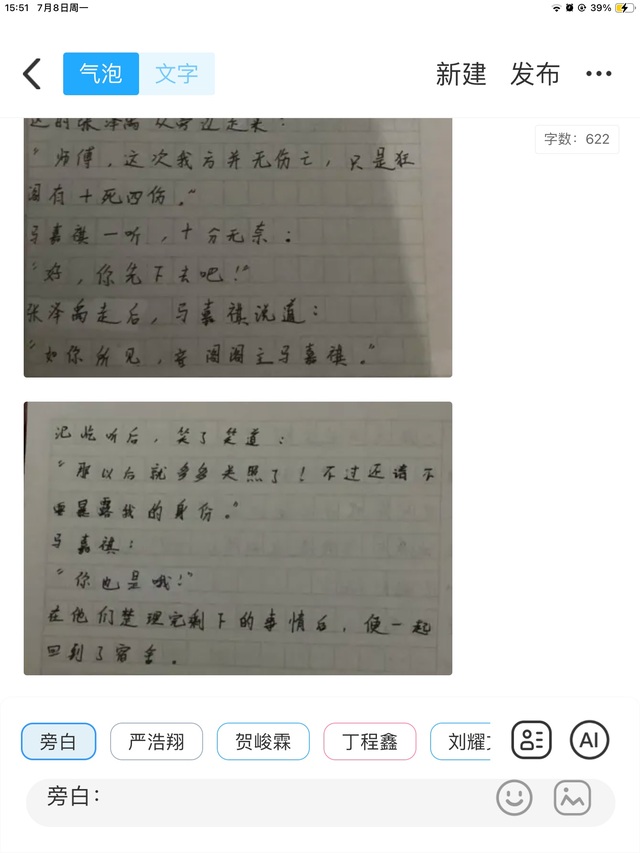 15:51 7月8日周一
39%
气泡 文字 新建 发布
字数：622
张泽禹从旁边走来：
“师傅，这次我方并无伤亡，只是狂
阁有十死四伤。”
马嘉祺一听，十分无奈：
“好，你先下去吧！”
张泽禹走后，马嘉祺说道：
“如你所见，在阁阁主马嘉祺。”
听后，笑了笑道：
“那以后就多多关照了！不过还请不
要暴露我的身份。”
马嘉祺：
“你也是哦！”
在他们楚理完剩下的事情后，便一起
回到了宿舍。
旁白 严浩翔 贺峻霖 丁程鑫 刘耀文 AI
旁白：